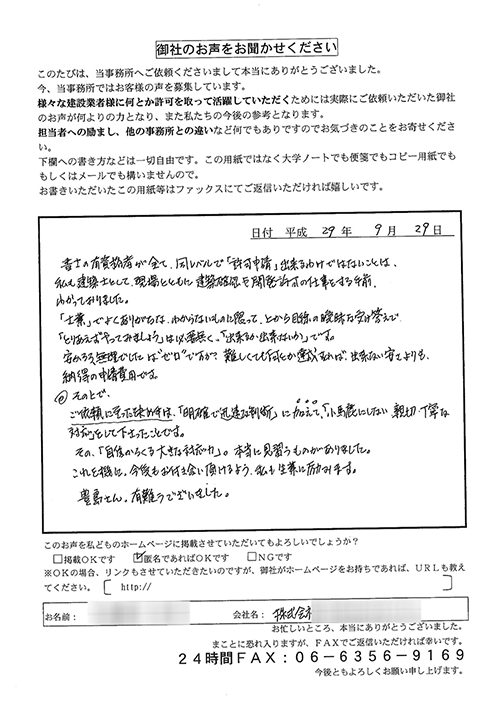 御社のお声をお聞かせください
このたびは、当事務所へご依頼くださいまして本当にありがとうございました。
今、当事務所ではお客様の声を募集しています。
様々な建設業者様に何とか許可を取って活躍していただくためには実際にご依頼いただいた御社
のお声が何よりの力となり、また私たちの今後の参考となります。
担当者への励まし、他の事務所との違いなど何でもありですのでお気づきのことをお寄せくださ
い。
下欄への書き方などは一切自由です。この用紙ではなく大学ノートでも便箋でもコピー用紙でも
もしくはメールでも構いませんので。
お書きいただいたこの用紙等はファックスにてご返信いただければ嬉しいです。
日付 平成 29 年 9 月 29 日
書士の有資格者が全て、同レベルで「許可申請」出来るわけではないことは、
私も建築士として、現場とともに建築確認や開発許可の仕事をする手前、
わかっておりました。
「士業」でよくありがちな、わからないものに限って、上から目線の曖昧な受け答えで
「とりあえずやってみましょう」は必要無く、「出来るか出来ないか」です。
安かろう、無理でした は"ゼロ"ですが? 難しくても何とか
出来ない 安 よりも、
納得の申請費用です。
その上で、
ご依頼に至った決め手は、「明確で迅速な判断」に加えて、「小馬鹿にしない親切丁寧な
対応」をして下さったことです。
その、「自信からくる大きな対応力」。本当に見習うものがありました。
これを機に、今後もお付き合い頂けるよう、私も生業に励みます。
豊島さん。有難うございました。
このお声を私どものホームページに掲載させていただいてもよろしいでしょうか?
□掲載OKです ☑匿名であればOKです □NGです
※OKの場合、リンクもさせていただきたいのですが、御社がホームページをお持ちであれば、URLも教え
てください。[ http:// ]
お名前: 会社名: 株式会社
お忙しいところ、本当にありがとうございました。
まことに恐れ入りますが、FAXでご返信いただければ幸いです。
24時間FAX:06-6356-9169
今後ともよろしくお願い申し上げます。